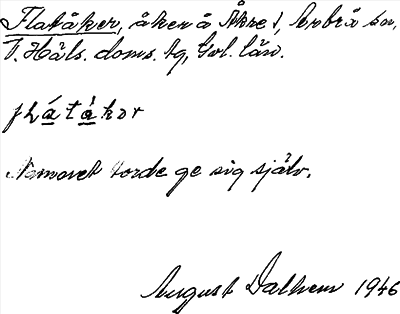 Flatåker, åker å Åkre 1, Arbrå sn,
V. Häls. doms. tg, Gvl. län.
flátàkər
Namnet torde ge sig själv.
August Dalhem 1946